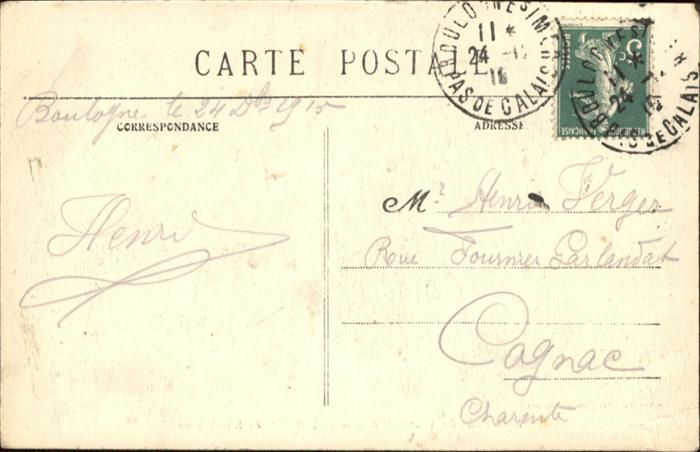 CARTE POSTALE
Boulogne le 24 Dbre 1915
CORRESPONDANCE
ADRESSE
Henri
Mr Henri Verger
Rue Fournier Garlandat
Cognac
Charente
BOULOGNE S/MER
11 *
24 -12
15
PAS DE CALAIS
5c
POSTES
REPUBLIQUE FRANÇAISE
BOULOGNE S/MER
11 *
24
PAS DE CALAIS